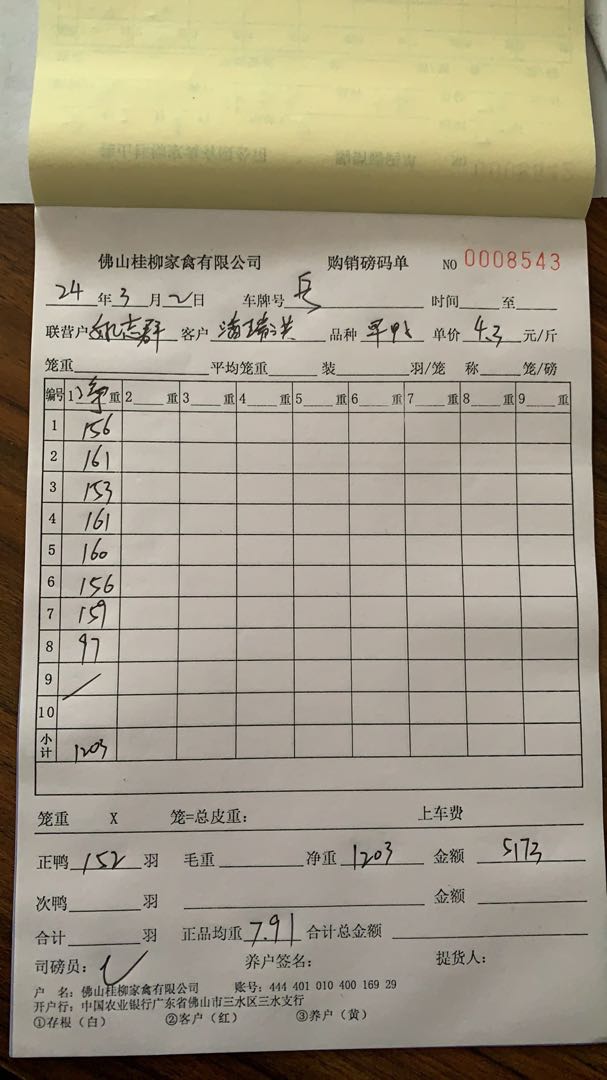 佛山桂柳家禽有限公司 购销磅码单 NO 0008543
24 年 3 月 2 日 车牌号 时间 至
联营户 志群 客户 潘瑞洪 品种 单价 4.3 元/斤
笼重 平均笼重 装 羽/笼 称 笼/磅
编号 1 净 重 2 重 3 重 4 重 5 重 6 重 7 重 8 重 9 重
1 156
2 161
3 153
4 161
5 160
6 156
7 159
8 97
9
10
小计 1203
笼重 X 笼=总皮重: 上车费
正鸭 152 羽 毛重 净重 1203 金额 5173
次鸭 羽 金额
合计 羽 正品均重 7.91 合计总金额
司磅员: 养户签名: 提货人:
户 名: 佛山桂柳家禽有限公司 账号: 444 401 010 400 169 29
开户行: 中国农业银行广东省佛山市三水区三水支行
①存根(白) ②客户(红) ③养户(黄)